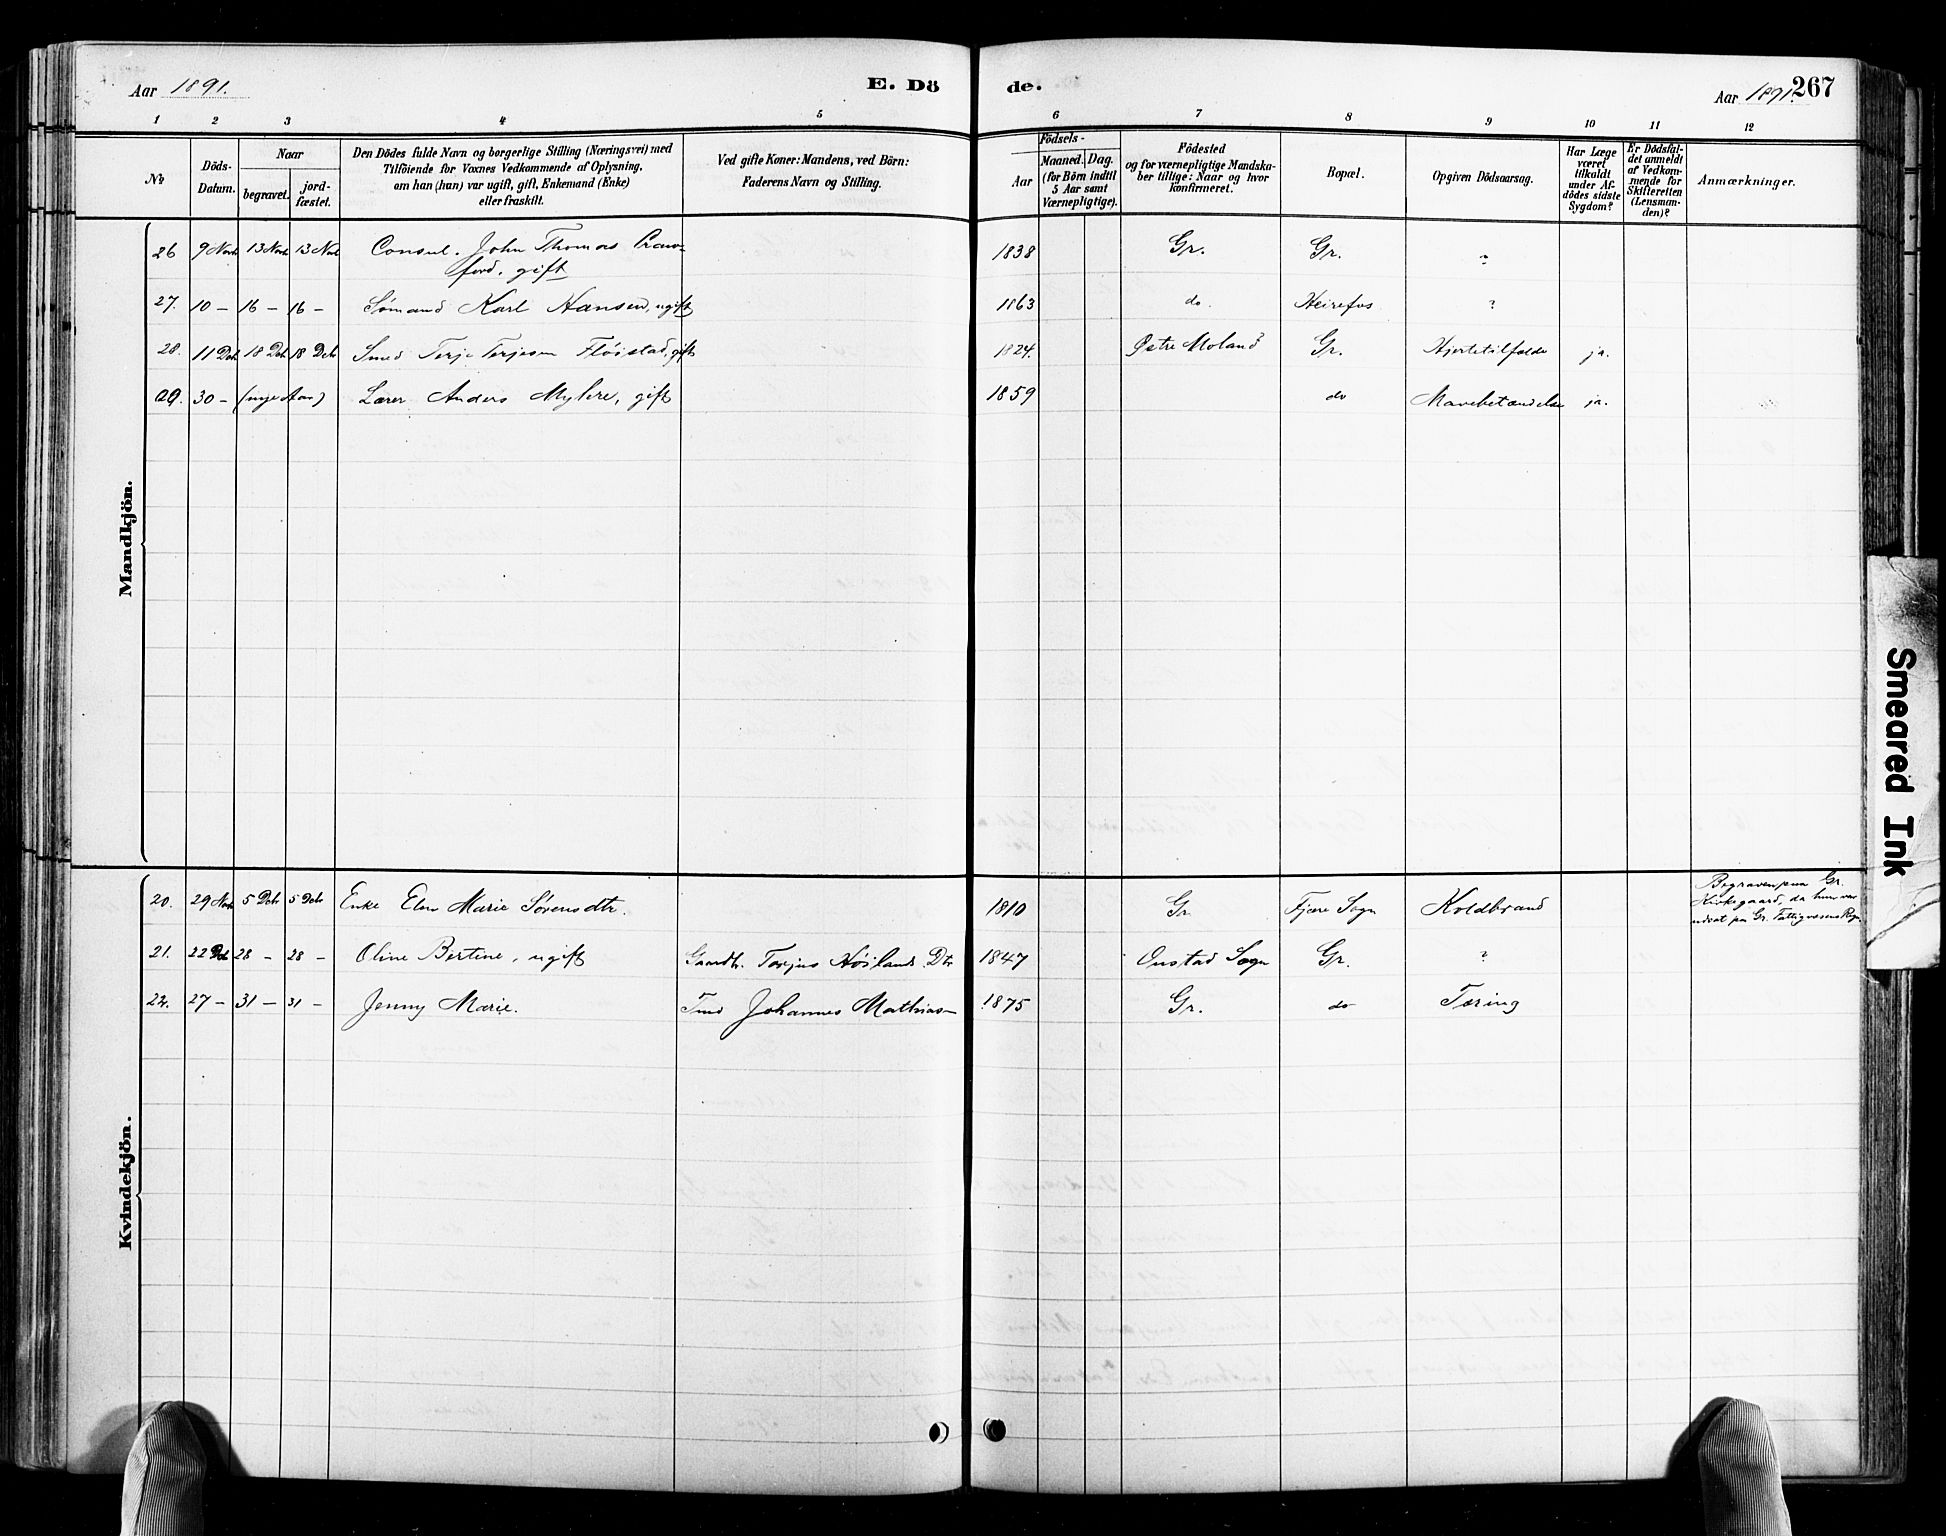 Aar 1891.
E. Dö
de.
Aar 1891.
267
1 2 3 4 5 6 7 8 9 10 11 12
No
Döds-
Datum.
Naar
begravet.
jord-
fæstet.
Den Dödes fulde Navn og borgerlige Stilling (Næringsvei) med
Tilföiende for Voxnes Vedkommende af Oplysning,
om han (hun) var ugift, gift, Enkemand (Enke)
eller fraskilt.
Ved gifte Koner: Mandens, ved Börn:
Faderens Navn og Stilling.
Födsels-
Aar
Maaned.
Dag.
(for Börn indtil
5 Aar samt
Værnepligtige).
Födested
og for værnepligtige Mandska-
ber tillige: Naar og hvor
konfirmeret.
Bopæl.
Opgiven Dödsaarsag.
Har Læge
været
tilkaldt
under Af-
dödes sidste
Sygdom?
Er Dödsfal-
det anmeldt
af Vedkom-
mende for
Skifteretten
(Lensman-
den)?
Anmærkninger.
Mandkjön.
26 9 Novb 13 Novb 13 Novb Consul. John Thomas Craw- 1838 Gr. Gr. ?
ford, gift
27. 10 - 16 - 16 - Sømand Karl Hansen, ugift 1863 do. Heirefos ?
28. 11 Deb 18 Deb 18 Deb Smed Terje Terjesen Fløistad, gift 1824. Østre Moland Gr. Hjertetilfælde ja.
29. 30 - (nye Aar) Lærer Anders Myhre, gift 1859 do Mavebetændelse ja.
Kvindekjön.
20. 29 Novb 5 Deb 5 Deb Enke Elen Marie Sørensdtr. 1810 Gr. Fjære Sogn Koldbrand
Begraven paa Gr.
Kirkegaard, da hun var
udsat paa Gr. Fattigvæsens Regn.
21. 22 Deb 28 - 28 - Oline Bertine, ugift Gaardbr. Tarjus Høilands Dtr 1847 Sogn Gr. ?
22. 27 - 31 - 31 - Jenny Marie. Johannes Mathias- 1875 Gr. do Tæring
Smeared Ink